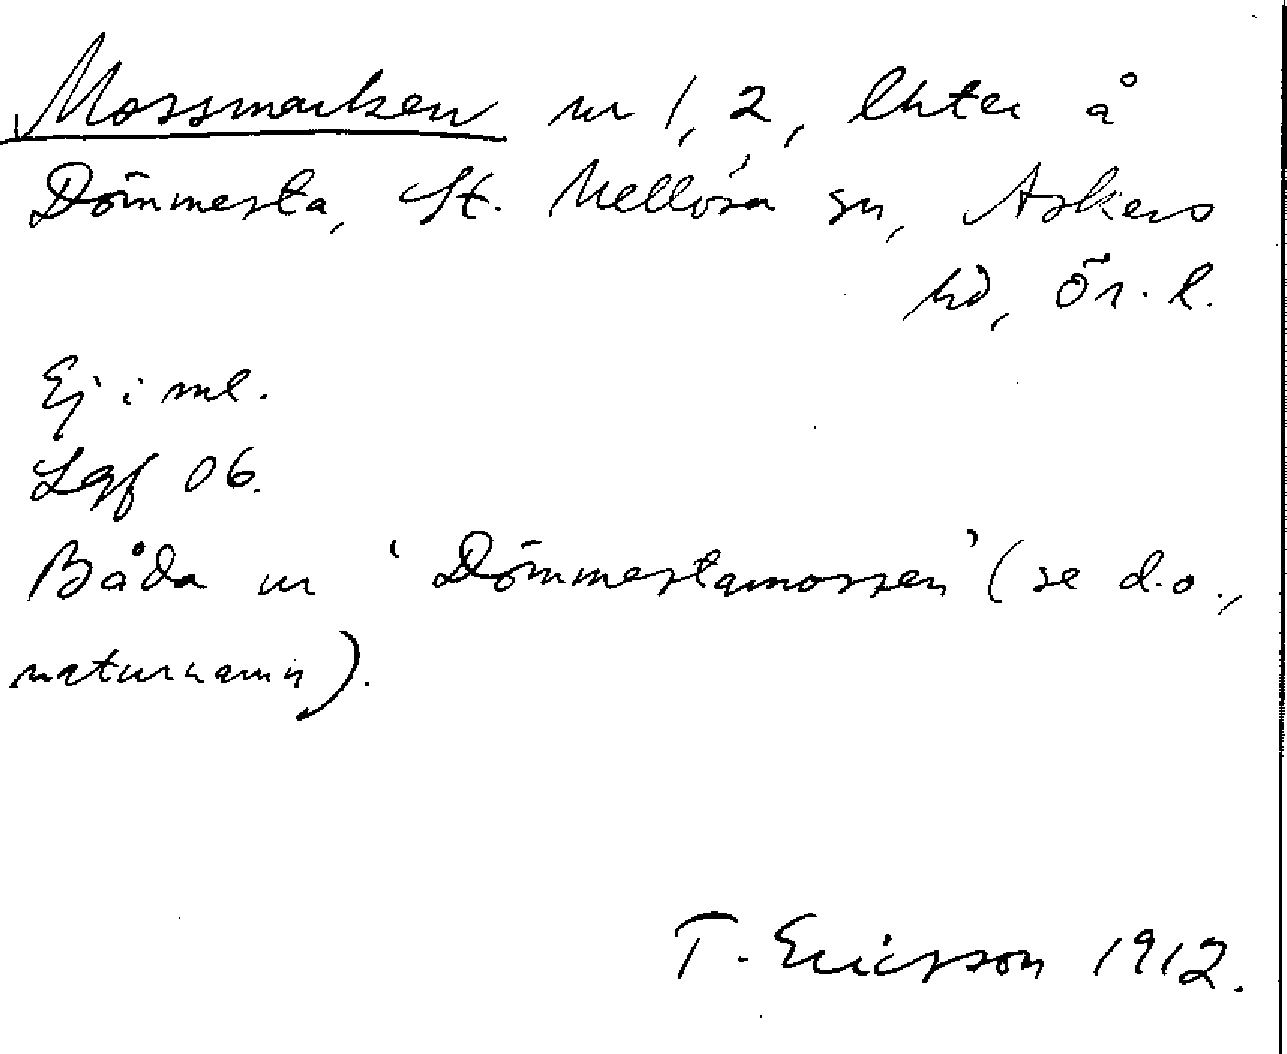 Mossmarken nr 1, 2, lhter å
Dömmesta, St. Mellösa sn, Askers
hd, Ör. l.
Ej i ml.
Lgf 06.
Båda ur 'Dömmestamossen' (se d.o.,
naturnamn).
T. Ericsson 1912.